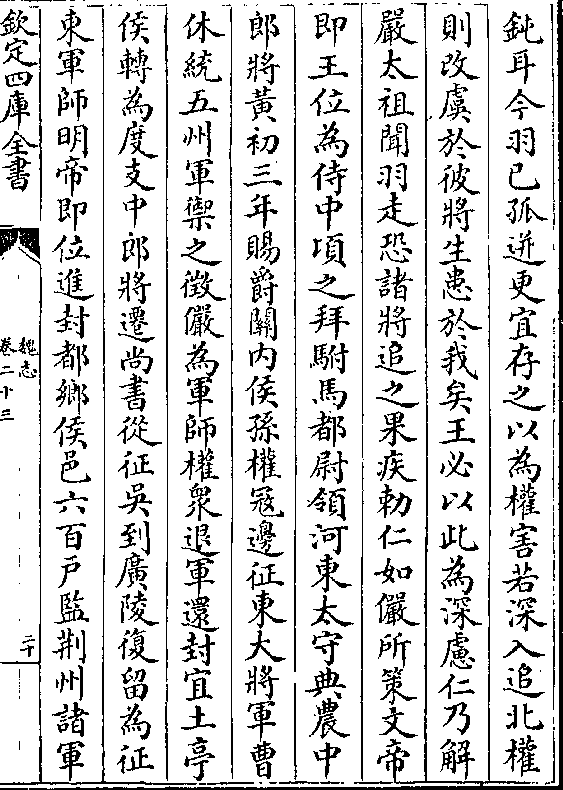 鈍耳今羽已孤迸更宜存之以為權害若深入追北權
則改虞於彼將生患於我矣王必以此為深慮仁乃解
嚴太祖聞羽走恐諸將追之果疾勅仁如儼所策文帝
即王位為侍中頃之拜駙馬都尉領河東太守典農中
郎將黃初三年賜爵關内侯孫權宼邊征東大將軍曹
休統五州軍禦之徵儼為軍師權衆退軍還封宜土亭
侯轉為度支中郎將遷尚書從征吳到廣陵復留為征
東軍師明帝即位進封都鄉侯邑六百戶監荆州諸軍
欽定四庫全書
魏志
卷二十三
二十